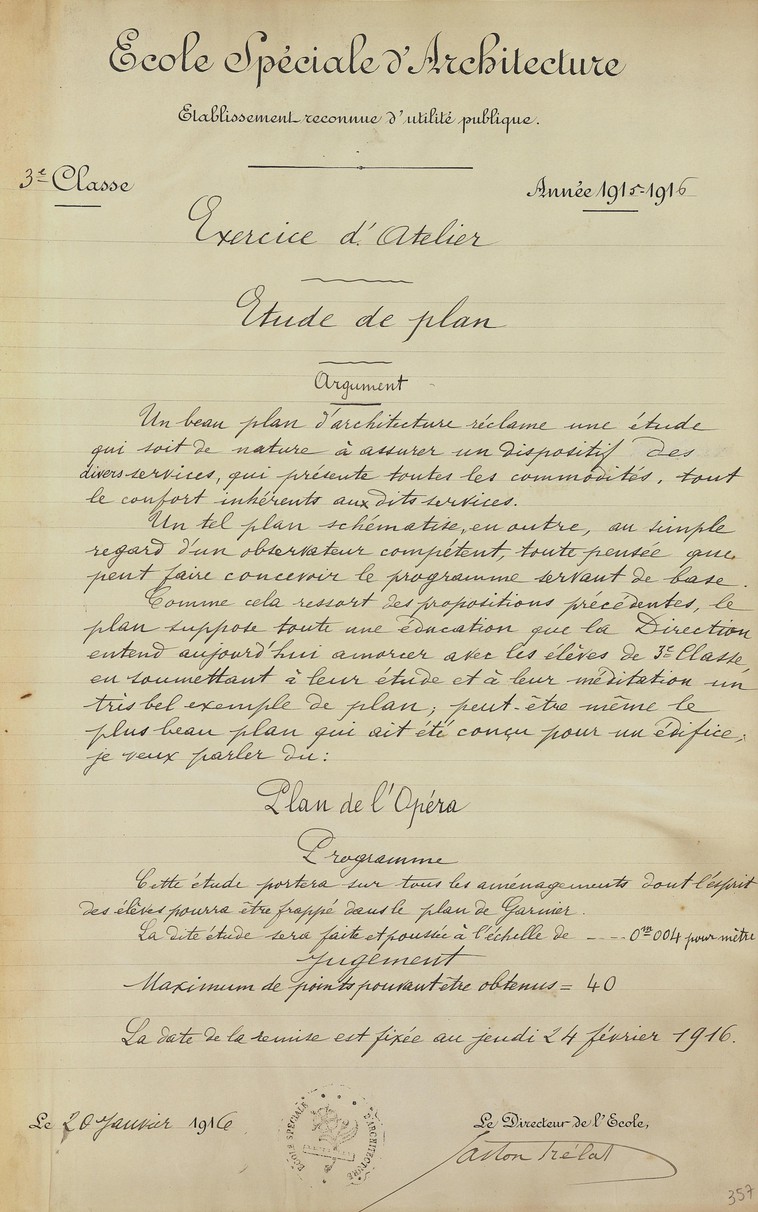 Ecole Spéciale d'Architecture
Etablissement reconnue d'utilité publique.
3e Classe
Année 1915-1916
Exercice d'Atelier
Etude de plan
Argument
Un beau plan d'architecture réclame une étude
qui soit de nature à assurer un dispositif des
divers services, qui présente toutes les commodités, tout
le confort inhérents aux dits services.
Un tel plan schématise, en outre, au simple
regard d'un observateur compétent, toute pensée que
peut faire concevoir le programme servant de base.
Comme cela ressort des propositions précédentes, le
plan suppose toute une éducation que la Direction
entend aujourd'hui amorcer avec les élèves de 3e Classe,
en soumettant à leur étude et à leur méditation un
très bel exemple de plan; peut-être même le
plus beau plan qui ait été conçu pour un édifice;
je veux parler du:
Plan de l'Opéra
Programme
Cette étude portera sur tous les aménagements dont l'esprit
des élèves pourra être frappé dans le plan de Garnier.
La dite étude sera faite et poussée à l'échelle de ---- 0m004 pour mètre
Jugement
Maximum de points pouvant être obtenus = 40
La date de la remise est fixée au jeudi 24 février 1916.
Le 20 Janvier 1916
ECOLE SPÉCIALE D'ARCHITECTURE
Le Directeur de l'Ecole,
Gaston Trélat
357